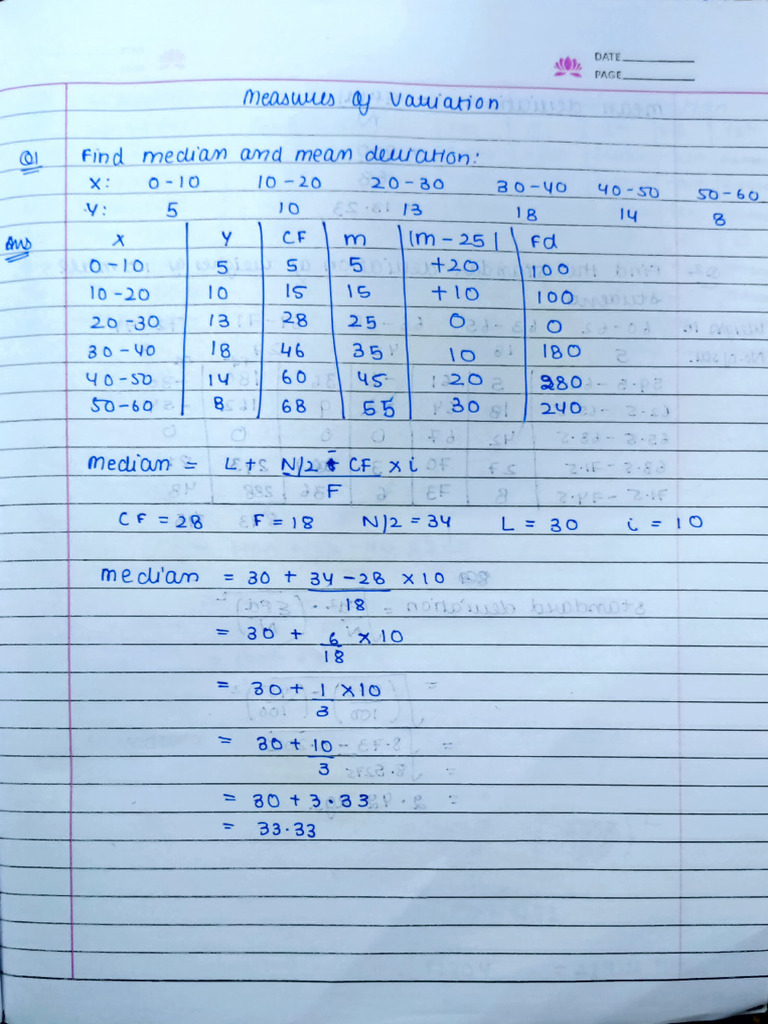 DATE
PAGE
Measures of Variation
Q1 Find median and mean deviation:
X: 0-10 10-20 20-30 30-40 40-50 50-60
Y: 5 10 13 18 14 8
Ans X Y CF m |m-25| Fd
0-10 5 5 5 +20 100
10-20 10 15 15 +10 100
20-30 13 28 25 0 0
30-40 18 46 35 10 180
40-50 14 60 45 20 280
50-60 8 68 55 30 240
median = L + N/2 - CF x i
F
CF = 28 F = 18 N/2 = 34 L = 30 i = 10
median = 30 + 34 - 28 x 10
18
= 30 + 6 x 10
18
= 30 + 1 x 10
3
= 30 + 10
3
= 30 + 3.33
= 33.33